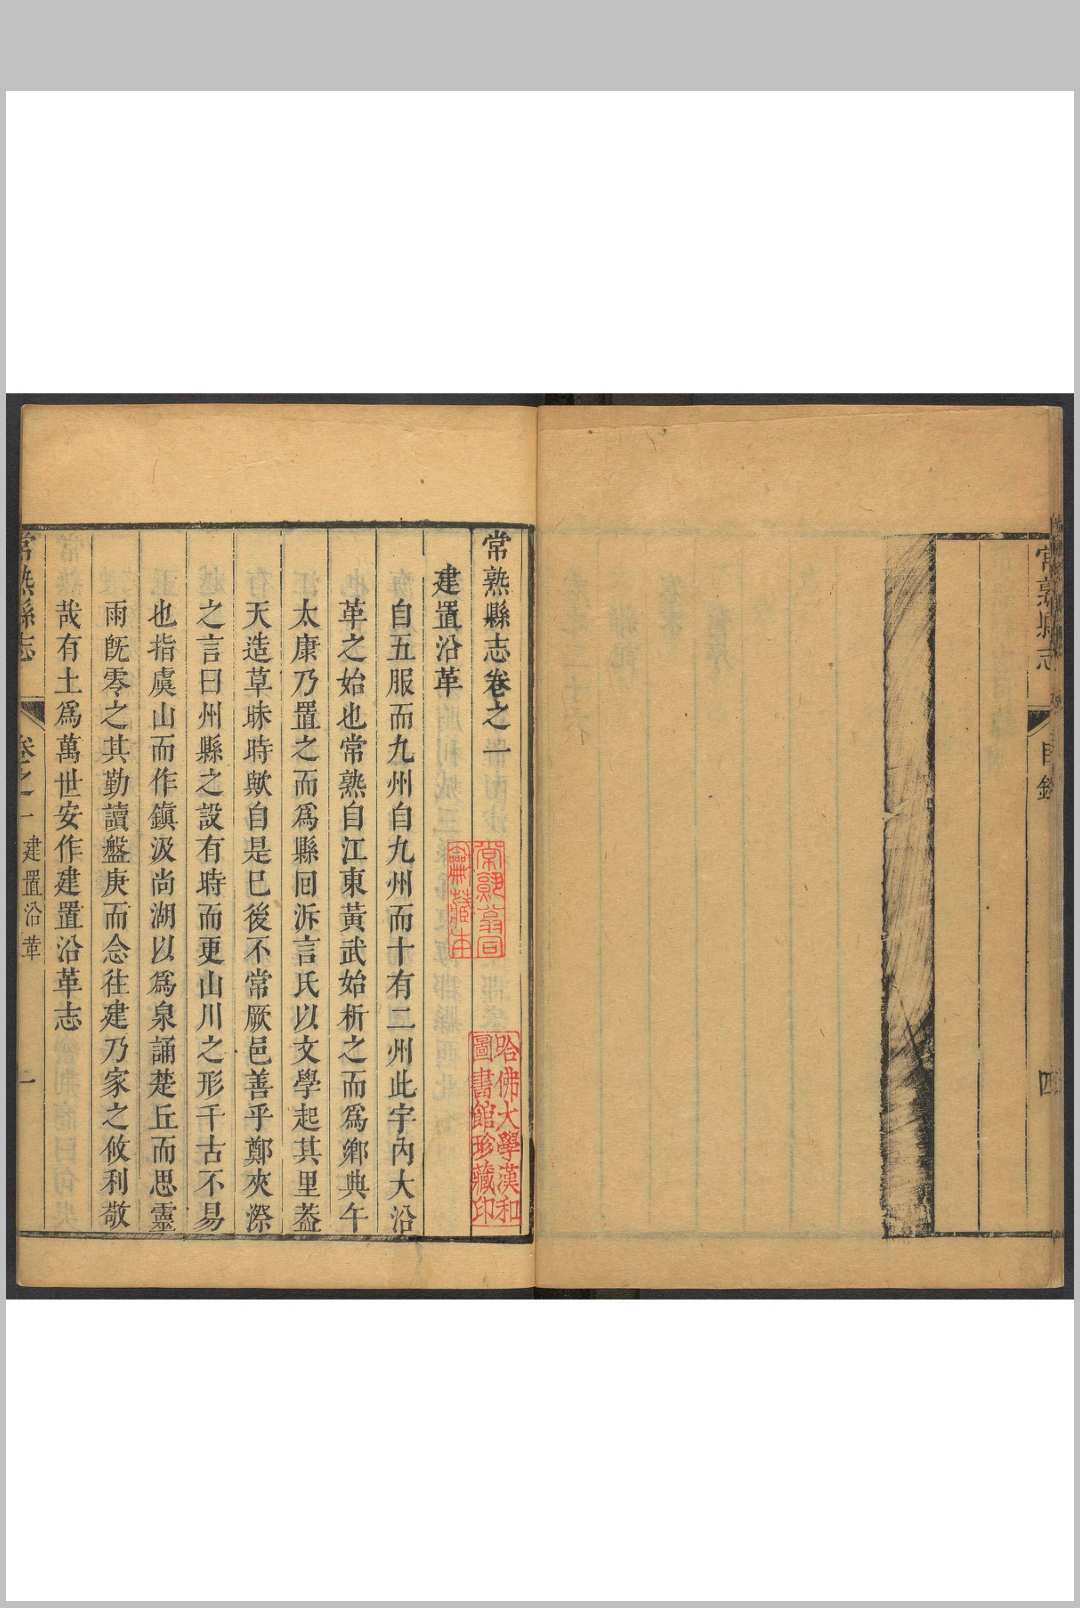 常熟縣志
目錄
四
常熟縣志卷之一
建置沿革
自五服而九州自九州而十有二州此宇內大沿
革之始也常熟自江東黃武始析之而爲鄉典午
太康乃置之而爲縣回泝言氏以文學起其里葢
天造草昧時歟自是已後不常厥邑善乎鄭夾漈
之言曰州縣之設有時而更山川之形千古不易
也指虞山而作鎭汲尚湖以爲泉誦楚丘而思靈
雨旣零之其勤讀盤庚而念往建乃家之攸利敬
哉有土爲萬世安作建置沿革志
常熟縣志
卷之一
建置沿革
一
哈佛大學漢和
圖書館珍藏印